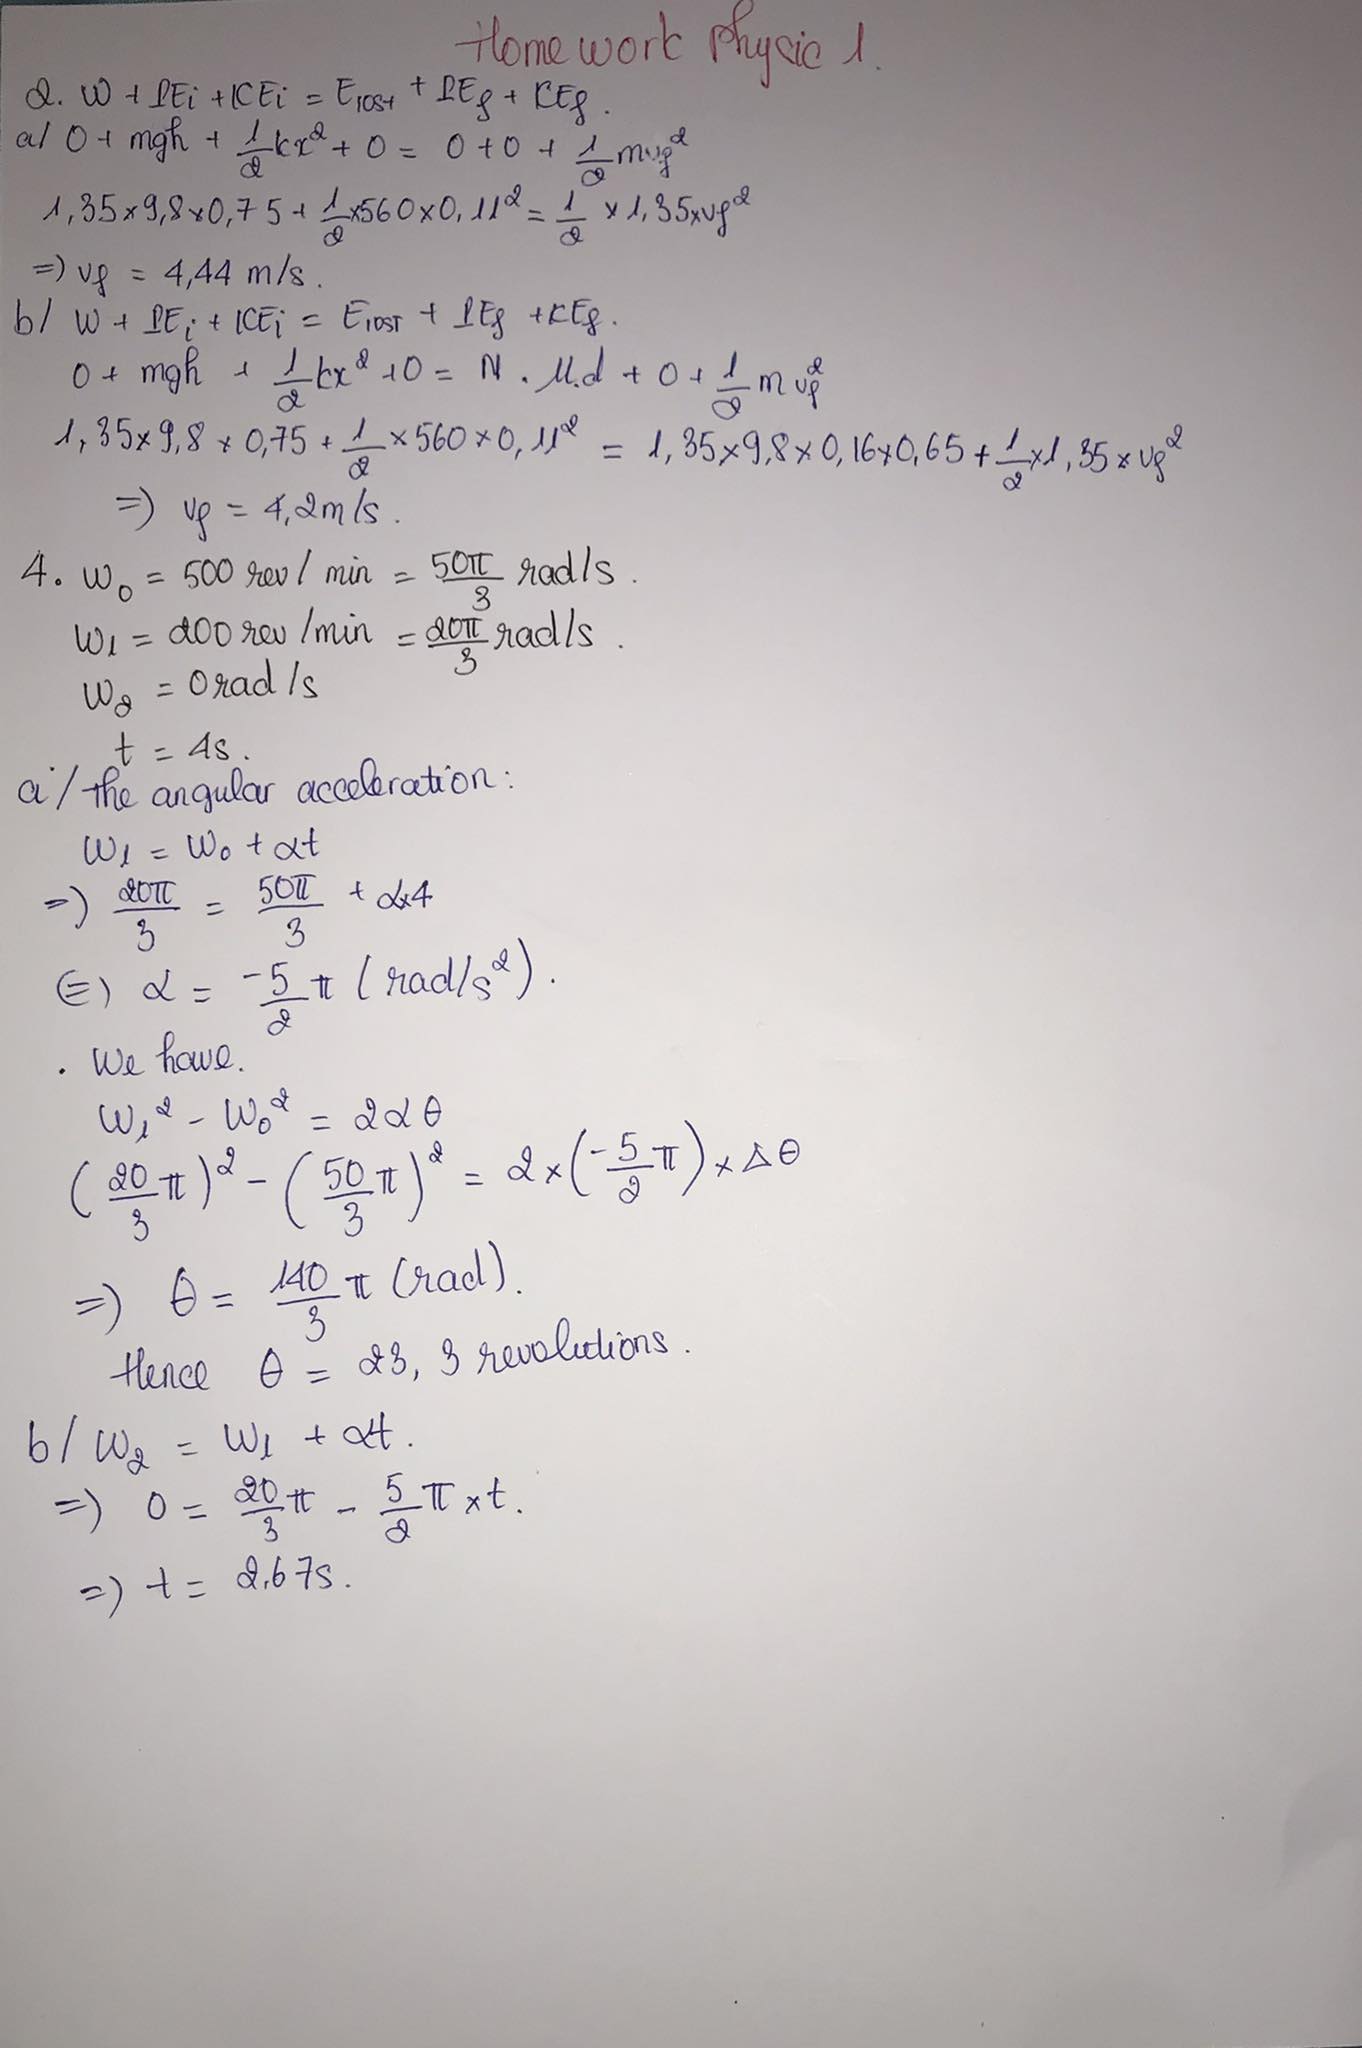 Home work Physic 1.
2. W + PEi + KEi = Elost + PEf + KEf.
a/ 0 + mgh + 1/2 kx² + 0 = 0 + 0 + 1/2 mvf²
1,35 x 9,8 x 0,75 + 1/2 x 560 x 0,11² = 1/2 x 1,35 x vf²
=) vf = 4,44 m/s.
b/ W + PEi + KEi = Elost + PEf + KEf.
0 + mgh + 1/2 kx² + 0 = N . μ.d + 0 + 1/2 m vf²
1,35 x 9,8 x 0,75 + 1/2 x 560 x 0,11² = 1,35 x 9,8 x 0,16 x 0,65 + 1/2 x 1,35 x vf²
=) vf = 4,2 m/s.
4. W₀ = 500 rev / min = 50π/3 rad/s.
W₁ = 200 rev /min = 20π/3 rad/s.
W₂ = 0 rad /s
t = 4s.
a / the angular acceleration:
W₁ = W₀ + αt
=) 20π/3 = 50π/3 + α x 4
(=) α = -5/2 π (rad/s²).
. We have.
W₁² - W₀² = 2αθ
(20/3 π)² - (50/3 π)² = 2 x (-5/2 π) x Δθ
=) θ = 140/3 π (rad).
Hence θ = 23, 3 revolutions.
b/ W₂ = W₁ + αt.
=) 0 = 20/3 π - 5/2 π x t.
=) t = 2.67s.